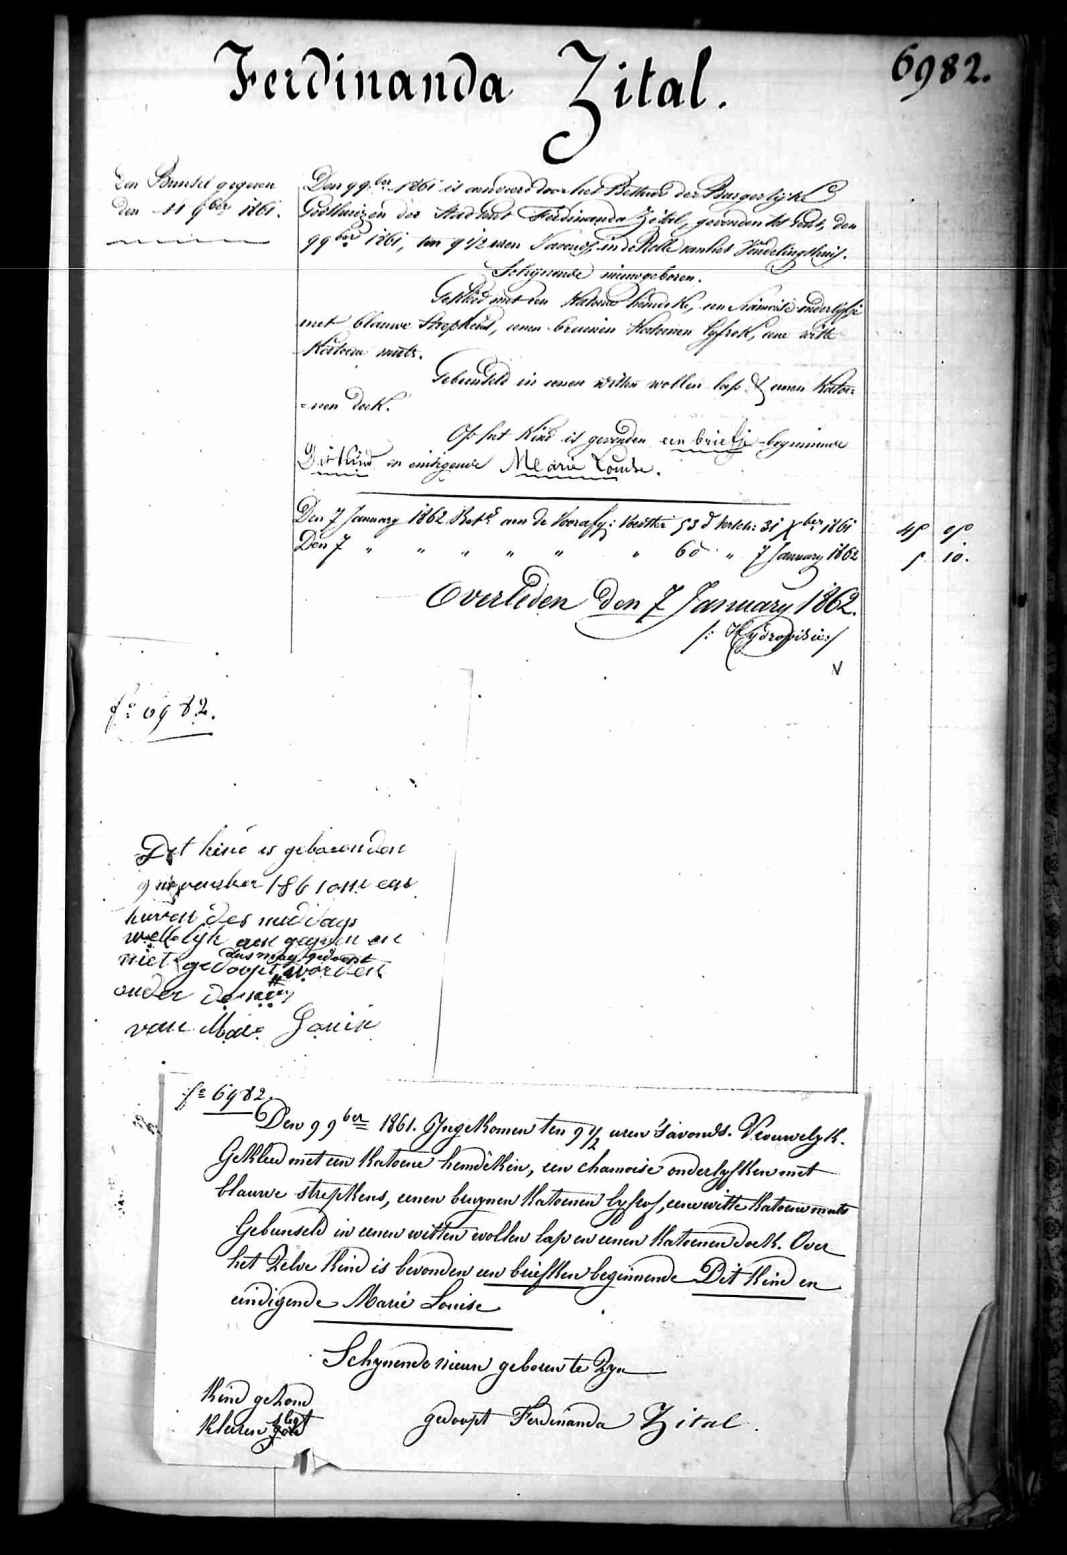 Ferdinanda Zital.
6982.
Den Bunsel gegeven
den 11 9ber 1861.
Den 9 9ber 1861 is aanveerd door het Bestuur der Burgerlyke
Godshuizen der Stad Ferdinanda Zital, gevonden den
9 9ber 1861, ten 9 1/2 uren 'savonds, in de Rolle van het Vindelingshuis.
Schynende nieuwgeboren.
Gekleed met een Katoene hemdeke, een Siamoise onderlyfje
met blauwe Strepkens, eenen bruinen Katoenen lyfrok, eene witte
Katoene muts.
Gebunseld in eenen witten wollen lap & eenen Katoe=
=nen doek.
Op het Kind is gevonden een briefje beginnende
Dit Kind en eindigende Marie Louise.
Den 7 January 1862 Bet. aan de Voorafg: 53 d 31 Xber 1861
Den 7 " " " " " " 6 d " 7 January 1862
10.
Overleden den 7 January 1862.
/: Hydropisie :/
V
fo 6982.
Dit kind is geboren den
9 november 1861 om een
huren des middags
wettelyk aen gegeven en
niet gedoopt worden
dus mag gedoopt
onder de
van Marie
fo 6982.
Den 9 9ber 1861. Ingekomen ten 9 1/2 uren 'savonds. Vrouwelyk.
Gekleed met een Katoene hemdeken, een chamoise onderlyfken met
blauwe strepkens, eenen bruynen Katoenen lyfrof, eene witte Katoene muts
Gebunseld in eenen witten wollen lap en eenen Katoenen doek. Over
het Zelve Kind is bevonden een briefken beginnende Dit Kind en
eindigende Marie Louise
Schynende nieuw geboren te Zyn
Kind gezond
Kleeren slegt
gedoopt Ferdinanda Zital.